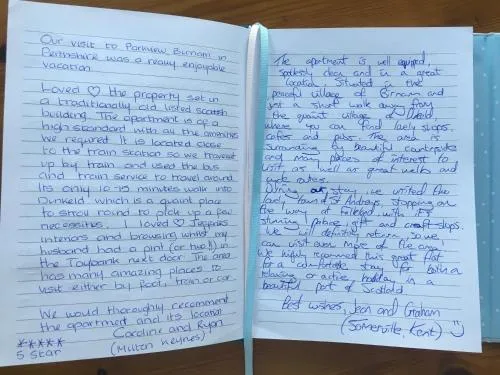 Our visit to Parkview, Birnam in
Perthshire was a really enjoyable
vacation.
Loved ♡ the property set in
a traditionally old listed scottish
building. The apartment is of a
high standard with all the amenities
we required. It is located close
to the train station so we travelled
up by train and used the bus
and train service to travel around.
Its only 10-15 minutes walk into
Dunkeld which is a quaint place
to stroll round to pick up a few
necessities. I loved ♡ Jeffreys
interiors and browsing whilst my
husband had a pint (or two!!) in
the Taybank next door. The area
has many amazing places to
visit either by foot, train or car.
We would thoroughly recommend
the apartment and its location
Caroline and Ryan
(Milton Keynes)
*****
5 Star
The apartment is well equiped,
spotlessly clean and in a great
location. Situated in the
peaceful village of Birnam and
just a short walk away from
the quaint village of Dunkeld,
where you can find lovely shops,
cafes and pubs. The area is
surrounding by beautiful countryside
and many places of interest to
visit as well as great walks and
cycle routes.
During our stay we visited the
lovely town of St Andrews, stopping on
the way at Falkland with it's
stunning palace, gift and craft shops.
We will definitely return, so we
can visit even more of the area.
We highly recommend this great flat
for a comfortable stay for both a
relaxing or active holiday in a
beautiful part of Scotland.
Best wishes, Jean and Graham
(Somerville, Kent)